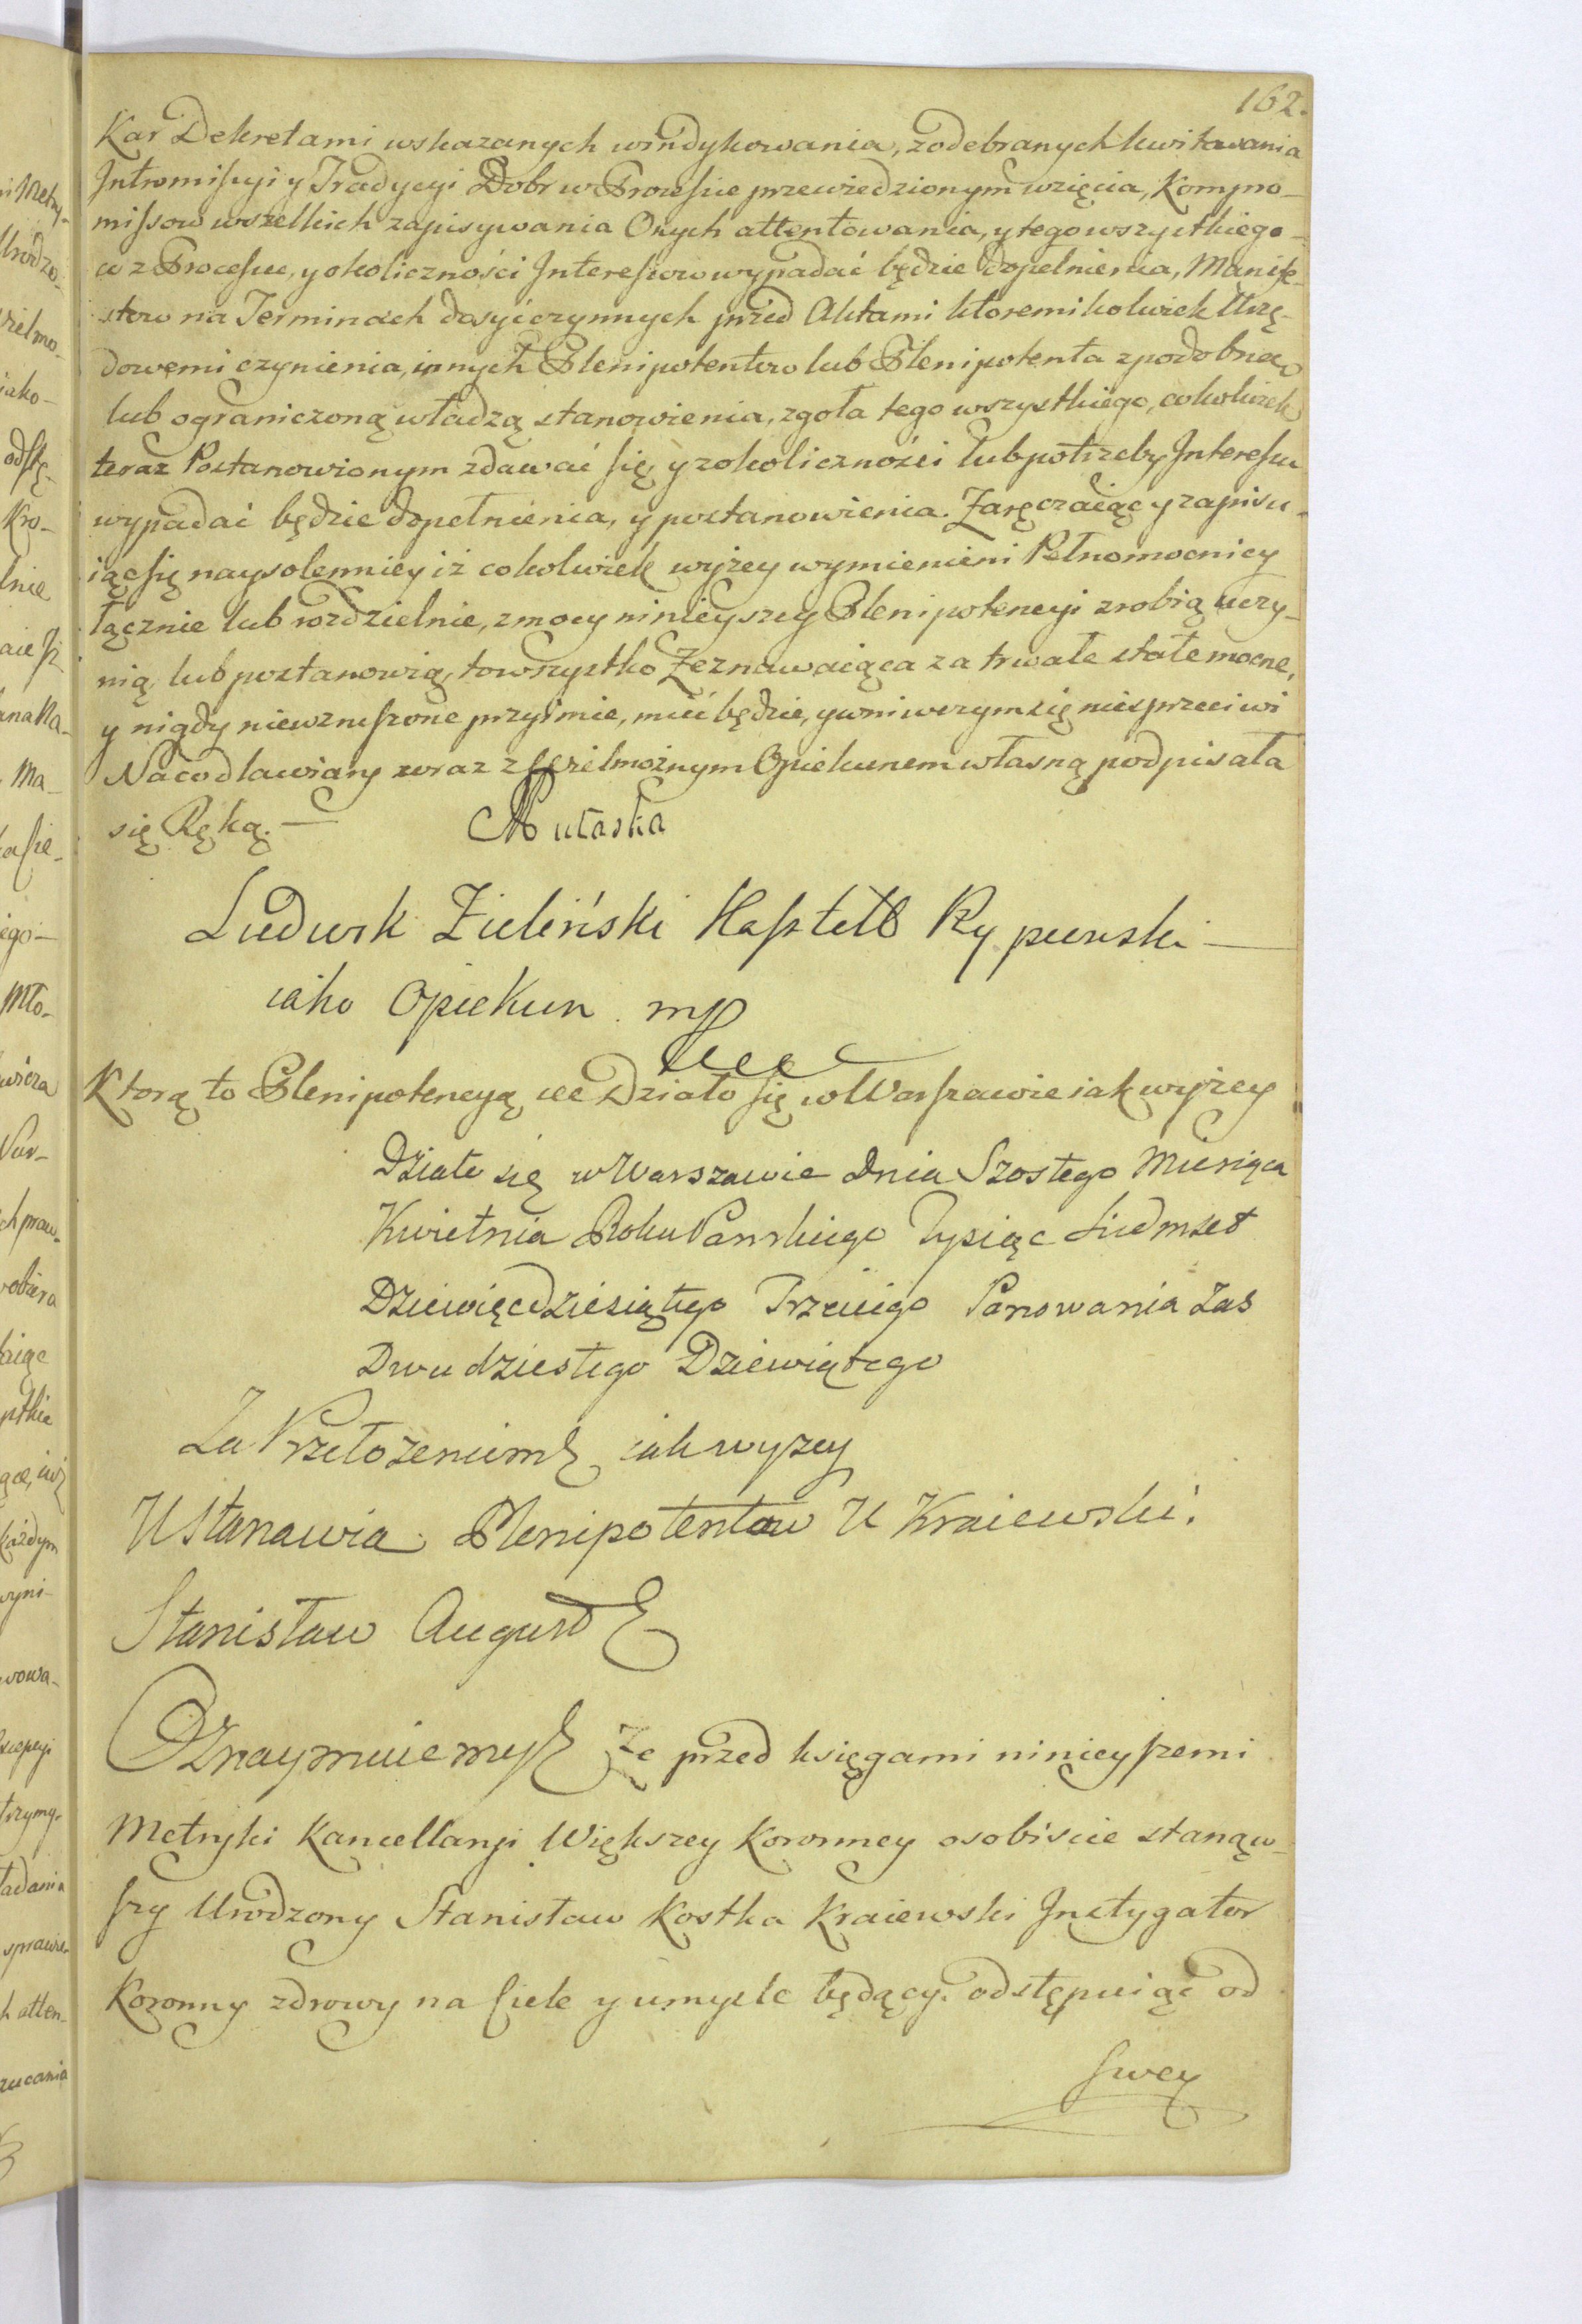 162.
Kar Dekretami wskazanych windykowania, zodebranych kwitowania
Intromissyi y Tradycyi Dobr w Processie przewiedzionym wzięcia, Kompro-
missow wszelkich zapisywania Onych attentowania, y tego wszystkiego
co z Processu, y okoliczności Interessow wypadać będzie dopełnienia, Manife-
stow na Terminach dosyć czynnych przed Aktami ktoremikolwiek Urzę-
dowemi czynienia, innych Plenipotentow lub Plenipotenta z podobną
lub ograniczoną władzą stanowienia, zgoła tego wszystkiego, cokolwiek
teraz Postanowionym zdawać się y z okoliczności lub potrzeby Interessu
wypadać będzie dopełnienia, y postanowienia. Zaręczaiąc y zapisu-
iąc się naysolenniey iż cokolwiek wyżey wymienieni Pełnomocnicy
łącznie lub rozdzielnie, z mocy ninieyszey Plenipotencyi zrobią uczy-
nią, lub postanowią, to wszystko Zeznawaiąca za trwałe stałe mocne,
y nigdy niewzruszone przyimie, mieć będzie, y w niwczym się niesprzeciwi
Na co dla wiary wraz z Wielmożnym Opiekunem własną podpisała
się Ręką. —
Ludwik Zieliński Kasztell Rypinski —
iako Opiekun mp
Ktorą to Plenipotencyą etc Działo się w Warszawie iak wyżey
Działo się w Warszawie Dnia Szostego Miesiąca
Kwietnia Roku Panskiego Tysiąc Siedmset
Dziewięcdziesiątego Trzeciego Panowania Zas
Dwudziestego Dziewiątego
Za Przełożeniem etc iak wyzey
Ustanawia Plenipotentow U Kraiewski.
Stanisław August etc
Oznaymuiemy etc Ze przed księgami ninieyszemi
Metryki Kancellaryi Większey Koronney osobiscie stanąw-
szy Urodzony Stanisław Kostka Kraiewski Instygator
Koronny zdrowy na Ciele y umysle będący. odstępuiąc od
swey